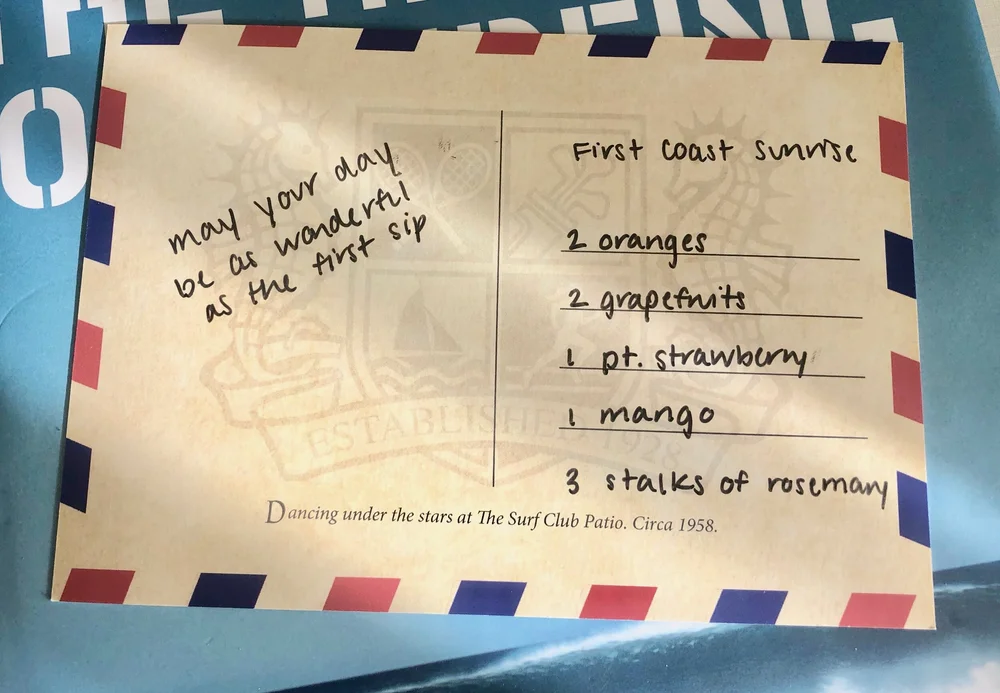 may your day
be as wonderful
as the first sip
First Coast Sunrise
2 oranges
2 grapefruits
1 pt. strawberry
1 mango
3 stalks of rosemary
ESTABLISHED 1928
Dancing under the stars at The Surf Club Patio. Circa 1958.